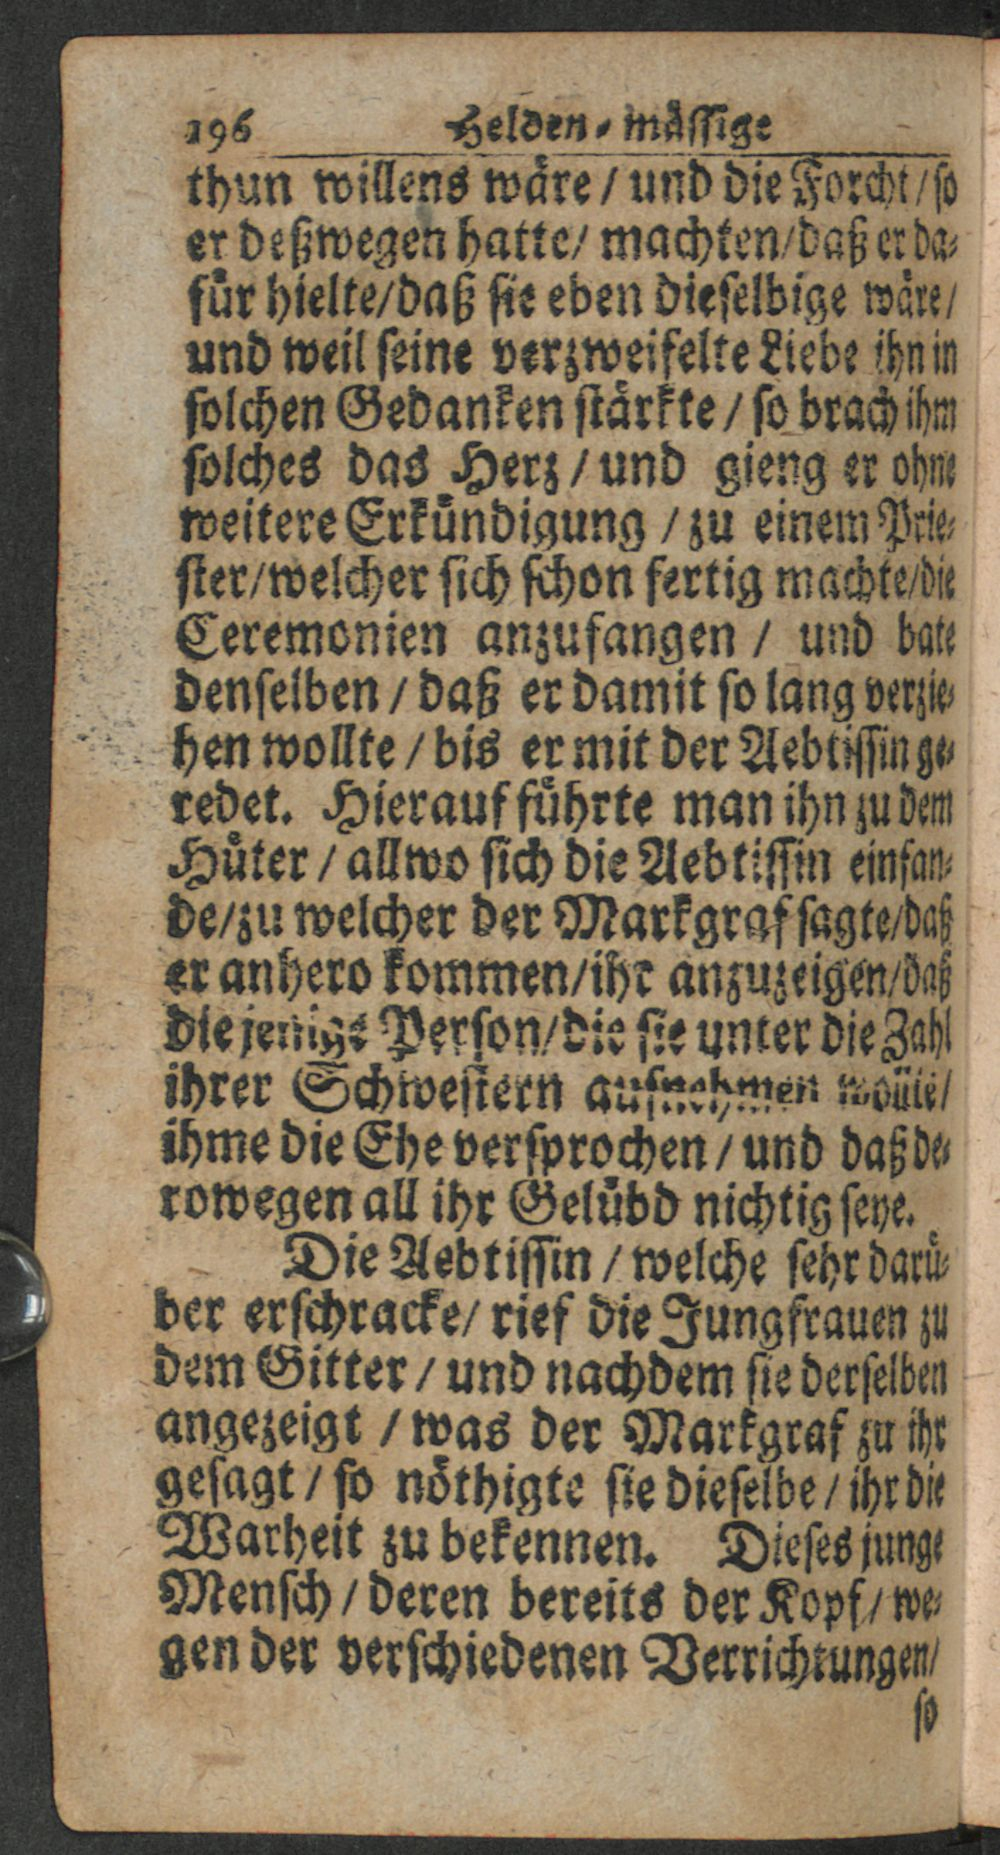 196 Helden-mässige
thun willens wäre / und die Forcht / so
er deßwegen hatte / machten / daß er da-
für hielte / daß sie eben dieselbige wäre /
und weil seine verzweifelte Liebe ihn in
solchen Gedanken stärkte / so brach ihm
solches das Herz / und gieng er ohne
weitere Erkündigung / zu einem Prie-
ster / welcher sich schon fertig machte / die
Ceremonien anzufangen / und bate
denselben / daß er damit so lang verzie-
hen wollte / bis er mit der Aebtissin ge-
redet. Hierauf führte man ihn zu dem
Hüter / allwo sich die Aebtissin einfan-
de / zu welcher der Markgraf sagte / daß
er anhero kommen / ihr anzuzeigen / daß
die jenige Person / die sie unter die Zahl
ihrer Schwestern aufnehmen wollte /
ihme die Ehe versprochen / und daß de-
rowegen all ihr Gelübd nichtig seye.
Die Aebtissin / welche sehr darü-
ber erschracke / rief die Jungfrauen zu
dem Gitter / und nachdem sie derselben
angezeigt / was der Markgraf zu ihr
gesagt / so nöthigte sie dieselbe / ihr die
Warheit zu bekennen. Dieses junge
Mensch / deren bereits der Kopf / we-
gen der verschiedenen Verrichtungen /
so